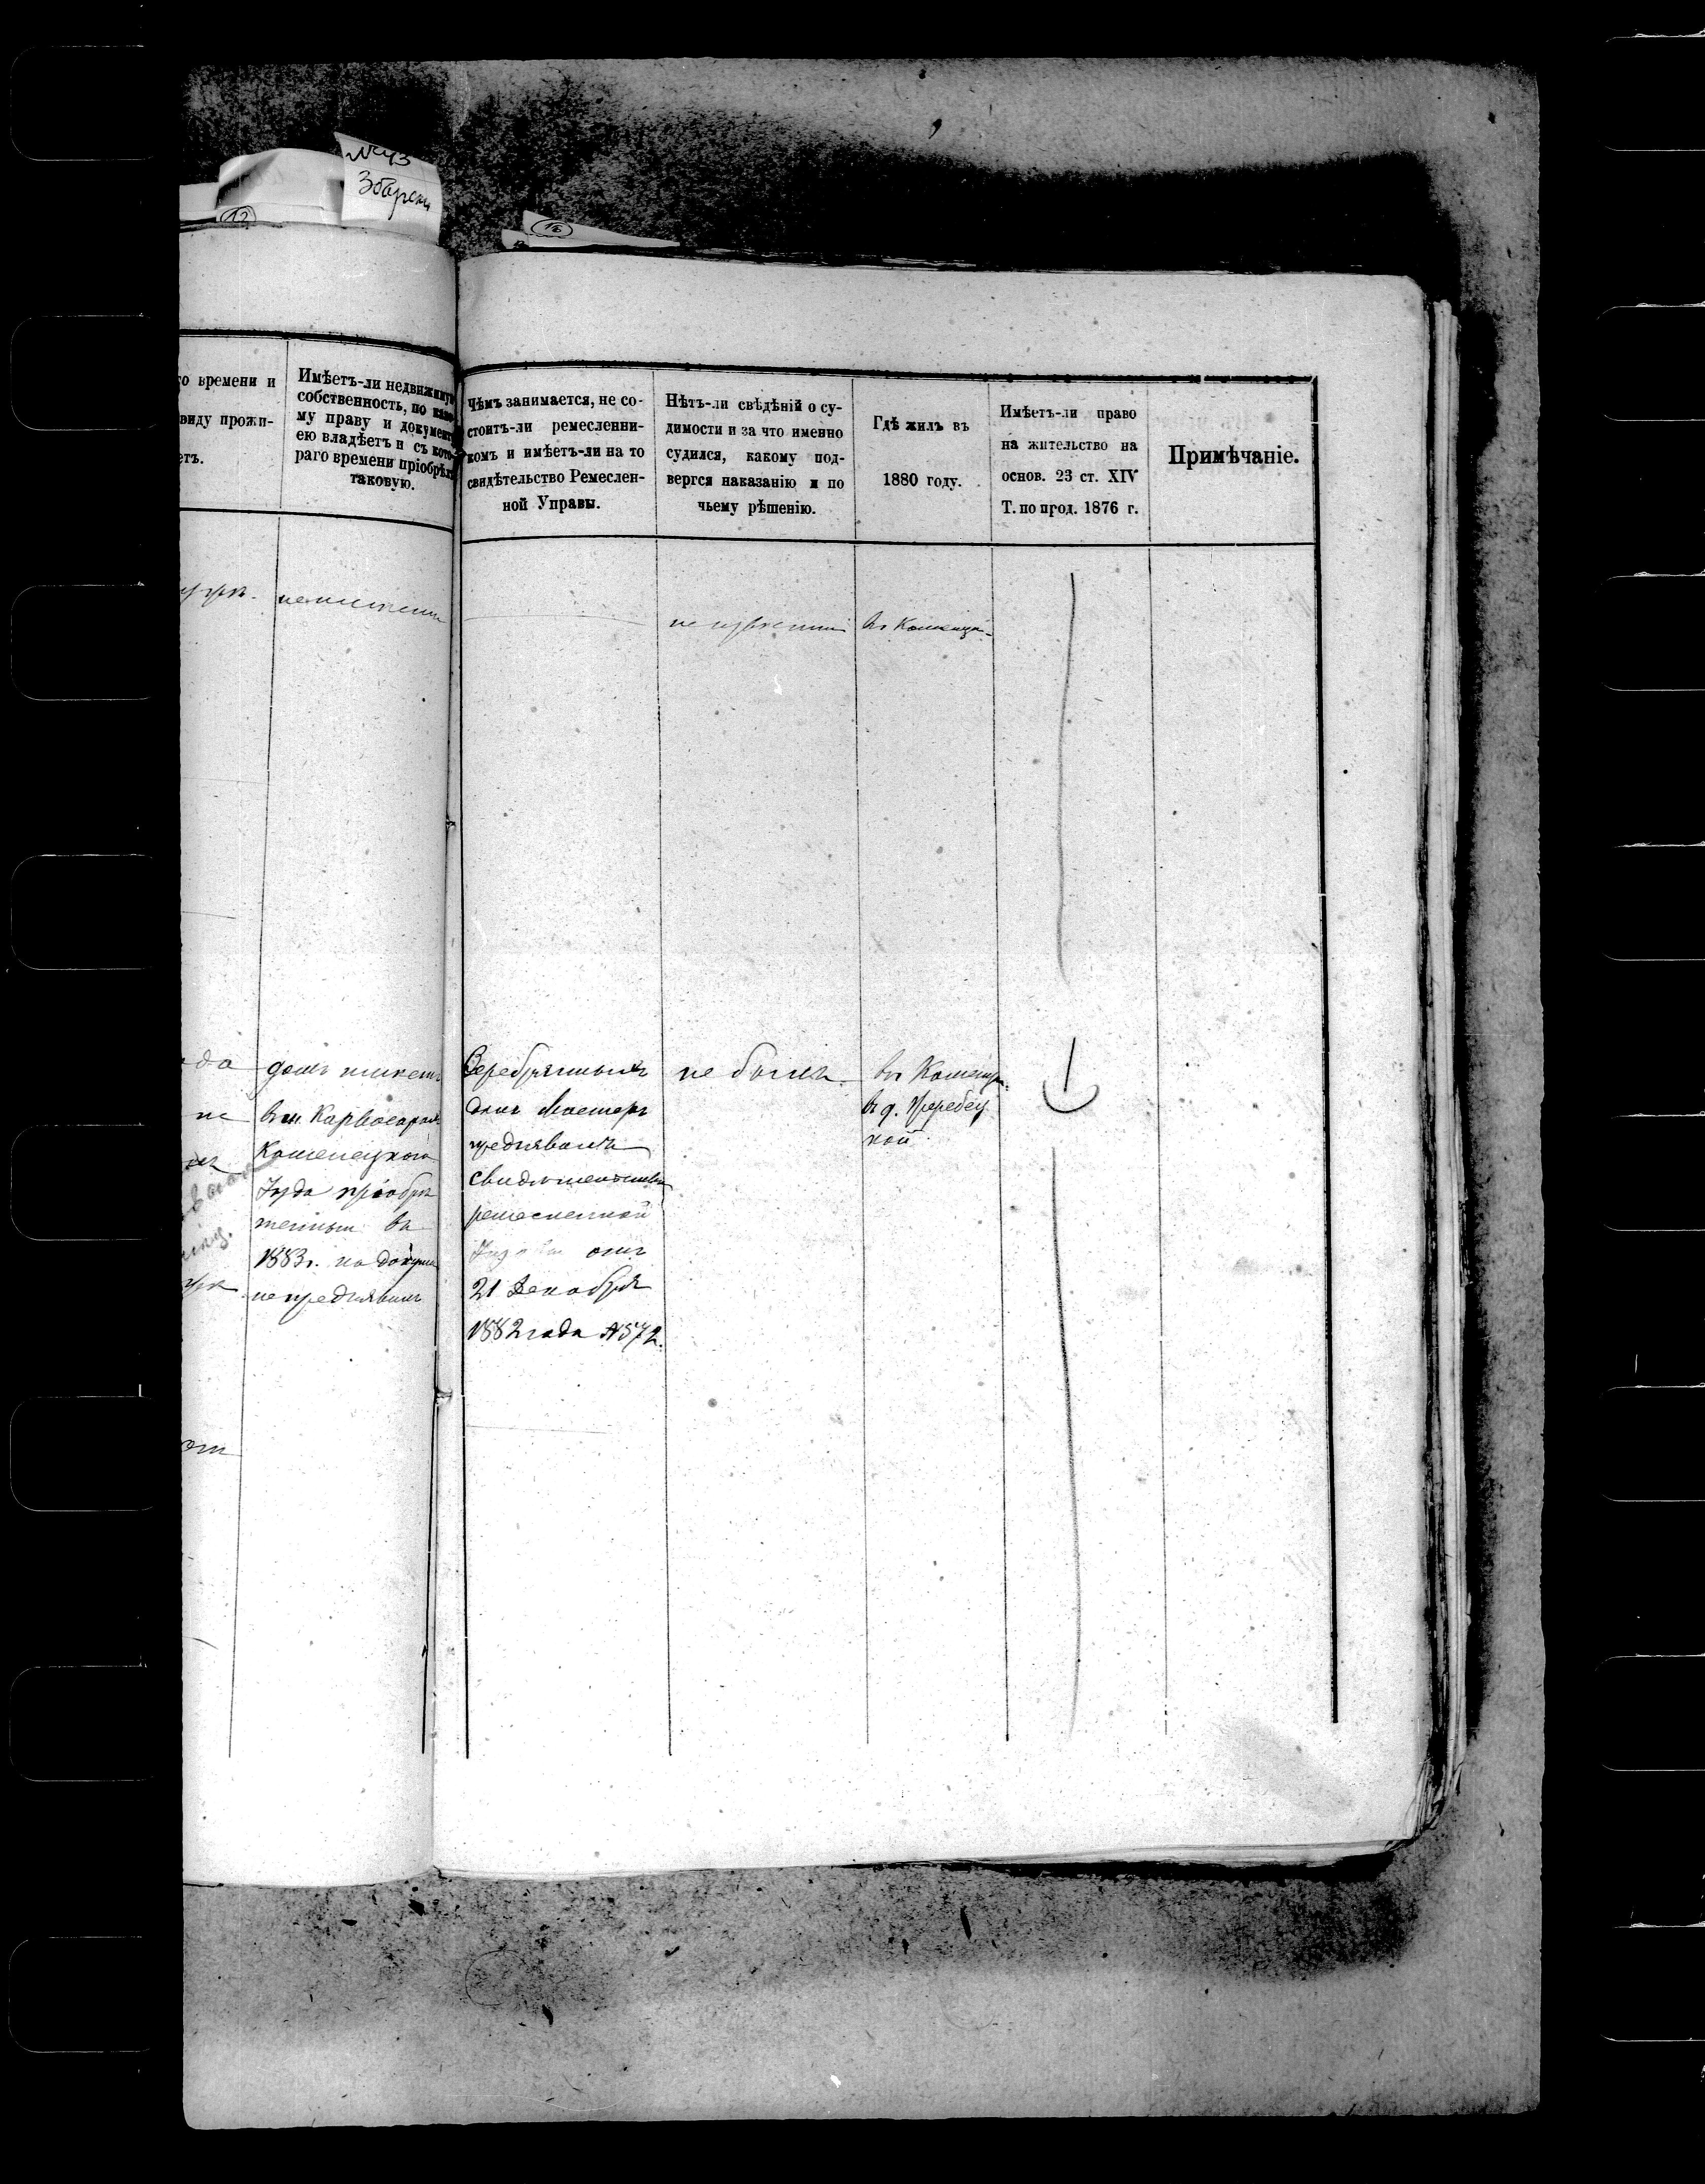 Збареж
12
16
го времени и
виду прожи-
етъ.
Имѣетъ-ли недвижимую
собственность, по како-
му праву и документу
ею владѣетъ и съ кото-
раго времени пріобрѣлъ
таковую.
Чѣмъ занимается, не со-
стоитъ-ли ремесленни-
комъ и имѣетъ-ли на то
свидѣтельство Ремеслен-
ной Управы.
Нѣтъ-ли свѣдѣній о су-
димости и за что именно
судился, какому под-
вергся наказанію и по
чьему рѣшенію.
Гдѣ жилъ въ
1880 году.
Имѣетъ-ли право
на жительство на
основ. 23 ст. XIV
Т. по прод. 1876 г.
Примѣчаніе.
неимѣетъ
въ Каменцѣ
да
не
домъ имѣетъ
въ м. Карвосарахъ
Каменецкаго
Уѣзда пріобрѣ
тенный въ
1883 г. но докум
непредъявилъ
Серебрянныхъ
дѣлъ Мастеръ
предъявилъ
свидѣтельство
ремесленной
отъ
21 Декабря
1882 года №572.
не былъ.
въ Каменцѣ
въ д.
кой